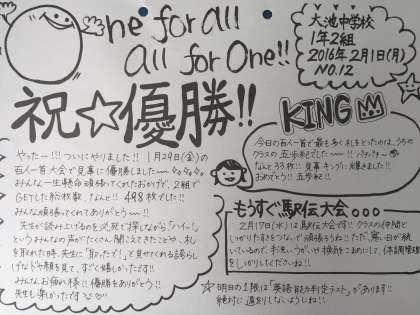 One for all
all for One!!
大池中学校
1年2組
2016年 2月1日(月)
NO.12
祝☆優勝!!
やったー!!! ついにやりました!! 1月29日(金)の
百人一首大会で見事に優勝しました〜
みんな一生懸命頑張ってくれたおかげで、2組で
GETした総枚数、なんと!! 498枚でした!!
みんな頑張ってくれてありがとう〜!!
先生が読み上げるのを必死で探しながら、「ハイ!」
というみんなの声がたくさん聞こえてきたことや、札
を取れた時、先生に「取ったで!」と見せてくれる誇らし
げなドヤ顔を見て、すごく嬉しかったです!!
みんなお疲れ様!! 優勝をありがとう!!
先生も楽しかったです
KING
今日の百人一首で最も多く札をとったのは、うちの
クラスの五歩紀でした〜!! パチパチ〜
なんと33枚!! 見事キングに輝きました!!
おめでとう!! 五歩紀!!
もうすぐ駅伝大会。。。
2月17日(水)は駅伝大会です!! クラスの仲間と
しっかりたすきをつないで頑張ろうね!! ただ、寒い日が続
いているので、手洗い、うがいや換気をこまめにして、体調管理
をしっかりしてくださいね!!
☆明日の1限は「英語能力判定テスト」があります!!
絶対に遅刻しないようにね!!